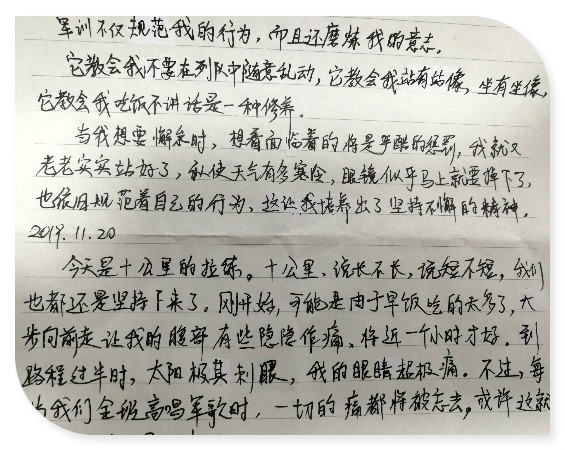 军训不仅规范我的行为，而且还磨炼我的意志。
它教会我不要在列队中随意乱动，它教会我站有站像，坐有坐像，
它教会我吃饭不讲话是一种修养。
当我想要懈怠时，想着面临着的将是严酷的惩罚，我就又
老老实实站好了，纵使天气有多寒冷，眼镜似乎马上就要掉下了，
也依旧规范着自己的行为，这让我培养出了坚持不懈的精神。
2019.11.20
今天是十公里的拉练。十公里，说长不长，说短不短，我们
也都还是坚持下来了。刚开始，可能是由于早饭吃的太多了，大
步向前走让我的腹部有些隐隐作痛，将近一个小时才好。到
路程过半时，太阳极其刺眼，我的眼睛超极痛。不过，每
当我们全班高唱军歌时，一切的痛都将被忘去，或许这就